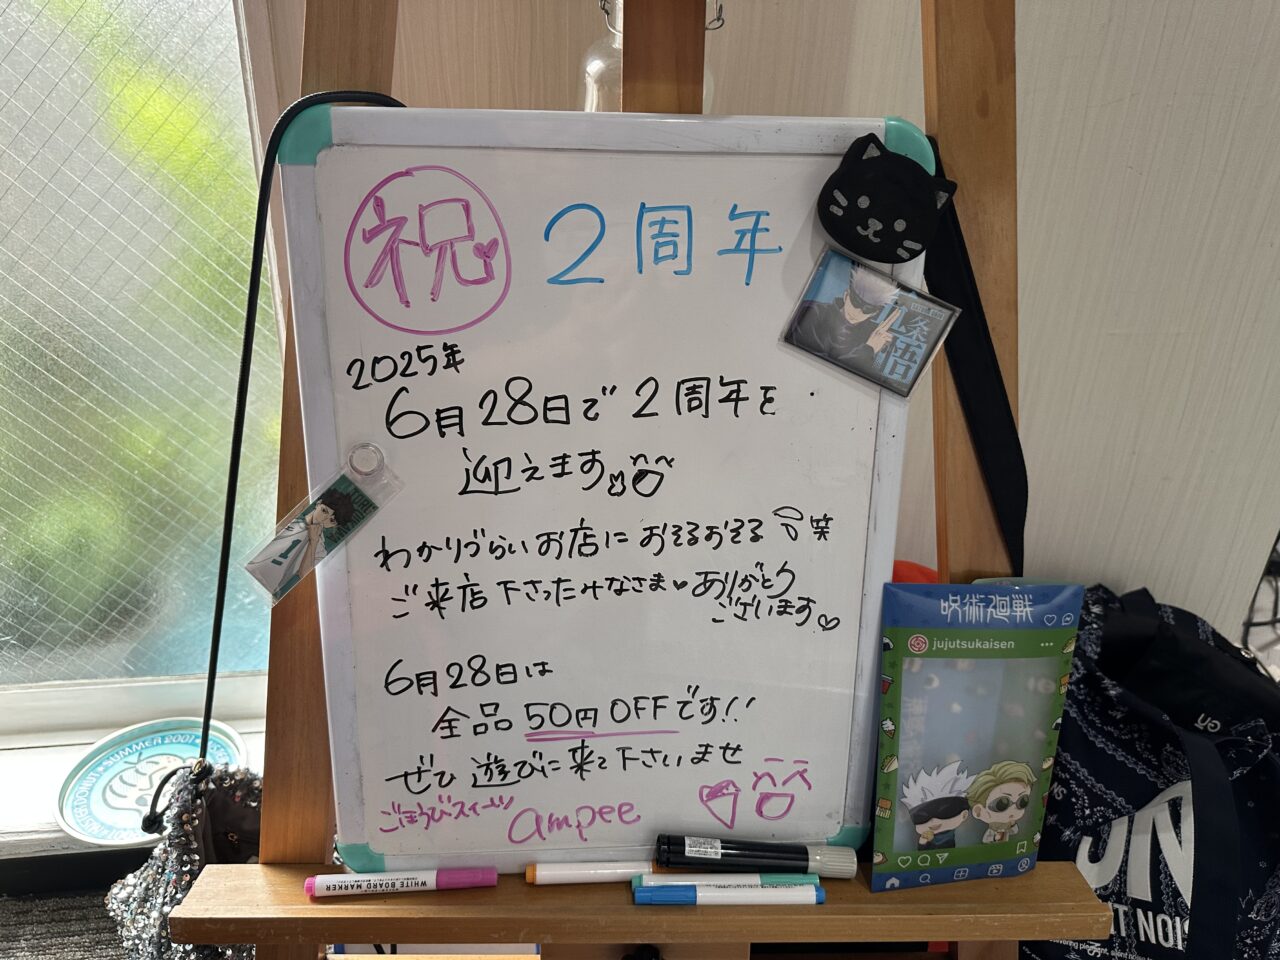 祝 2周年
2025年
6月28日で2周年を
迎えます
わかりづらいお店におそるおそる 笑
ご来店下さったみなさま♥ありがとう
ございます♡
6月28日は
全品50円OFFです!!
ぜひ遊びに来て下さいませ
ごほうびスイーツ ampee
五条悟
1
呪術廻戦
jujutsukaisen
SUMMER 2001
WHITE BOARD MARKER
ON
T NOIS